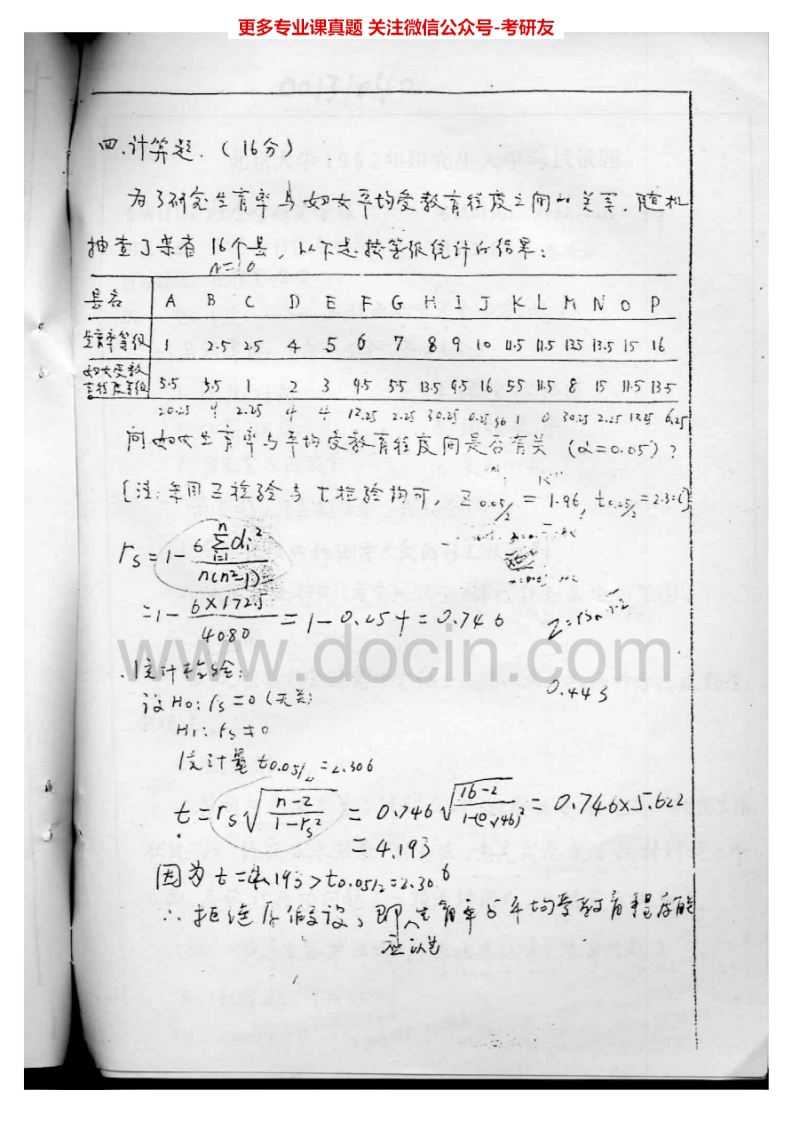 更多专业课真题 关注微信公众号-考研友
四.计算题.（16分）
为了研究生育率与妇女平均受教育程度之间的关系,随机
抽查了某省16个县,以下是按等级统计的结果:
n=10
县名 A B C D E F G H I J K L M N O P
生育率等级 1 2.5 2.5 4 5 6 7 8 9 10 11.5 11.5 13.5 13.5 15 16
妇女受教育程度等级 5.5 5.5 1 2 3 9.5 5.5 13.5 9.5 16 5.5 11.5 8 15 11.5 13.5
20.25 9 2.25 4 4 12.25 2.25 30.25 0.25 36 0 30.25 2.25 12.25 6.25
问妇女生育率与平均受教育程度间是否有关（α=0.05）?
[注:采用Z检验与t检验均可, Z0.05/2 = 1.96, t0.05/2 = 2.306]
rs = 1- 6∑di² / n(n²-1)
=1- 6×172.5 / 4080 = 1-0.254 = 0.746
www.docin.com
统计检验:
0.443
设H0: rs=0 (无关)
H1: rs≠0
统计量 t0.05/2 =2.306
t = rs√(n-2 / 1-rs²) = 0.746√(16-2 / 1-(0.746)²) = 0.746×5.622
= 4.193
因为 t=4.193 > t0.05/2=2.306
∴拒绝原假设,即生育率与平均受教育程度